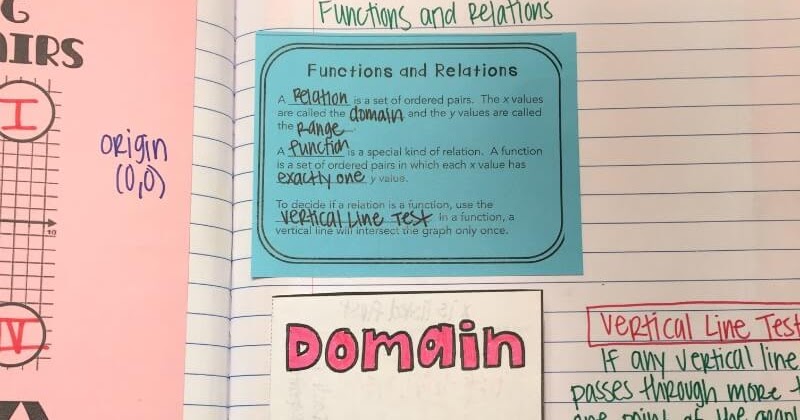 AIRS
I
10
IV
origin
(0,0)
Functions and Relations
Functions and Relations
A Relation is a set of ordered pairs. The x values
are called the domain and the y values are called
the Range.
A function is a special kind of relation. A function
is a set of ordered pairs in which each x value has
exactly one y value.
To decide if a relation is a function, use the
Vertical Line Test. In a function, a
vertical line will intersect the graph only once.
Domain
Vertical Line Test
If any vertical line
passes through more